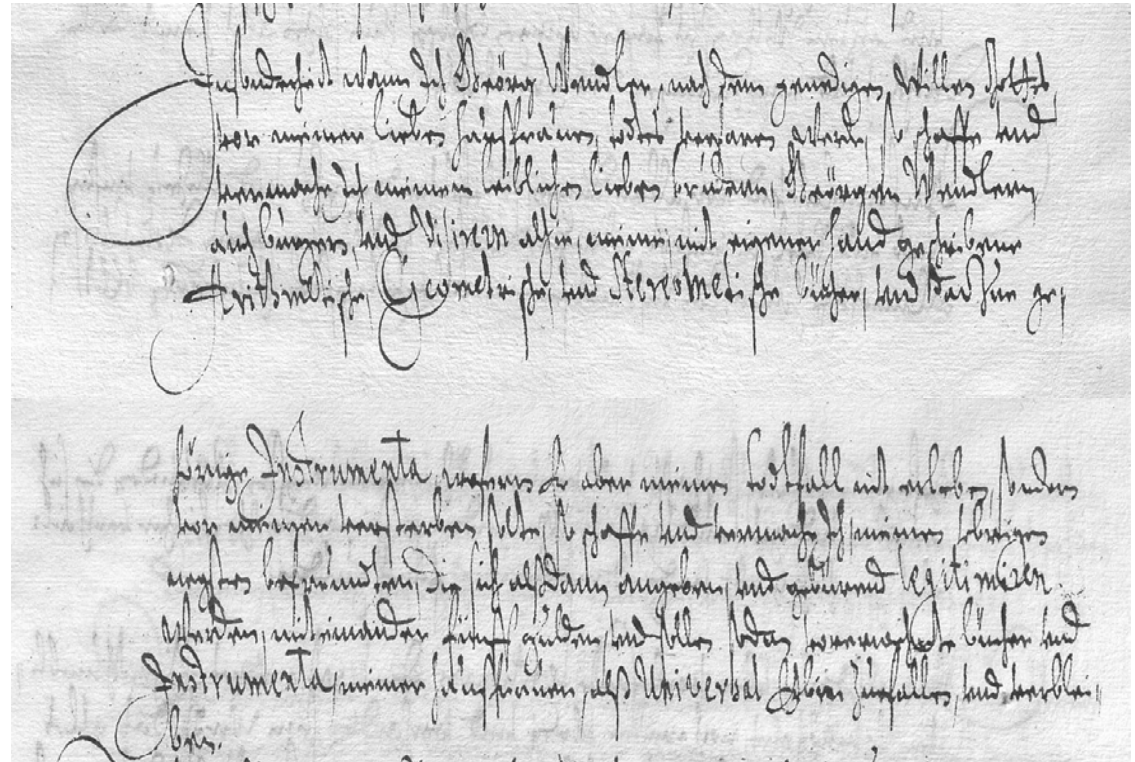 Insonderheit wann Ich Geörg Wendler, nach dem genedigen Willen Gottes,
vor meiner lieben haußfrauen, todes verfaren werde, so schaffe und
vermache Ich meinem leiblichen lieben brudern, Geörgen Wendlern,
auch burgern, und Visirern alhie, meine, mit eigener hand geschribene
Arithmetische, Geometrische, und Stereometrische bücher, und darzue ge,
hörige Instrumenta, wofern Er aber meinen todtfall nit erleben, sondern
vor meinem versterben solte, so schaffe und vermache Ich, meinen übrigen
negsten befreundten, die sich alßdann angeben, und gebürend legitimiren
werden, mit einander fünff gulden, und sollen sodan vorermelte bücher und
Instrumenta, meiner haußfrauen, alß Universal Erbin zuefallen, und verblei,
ben.